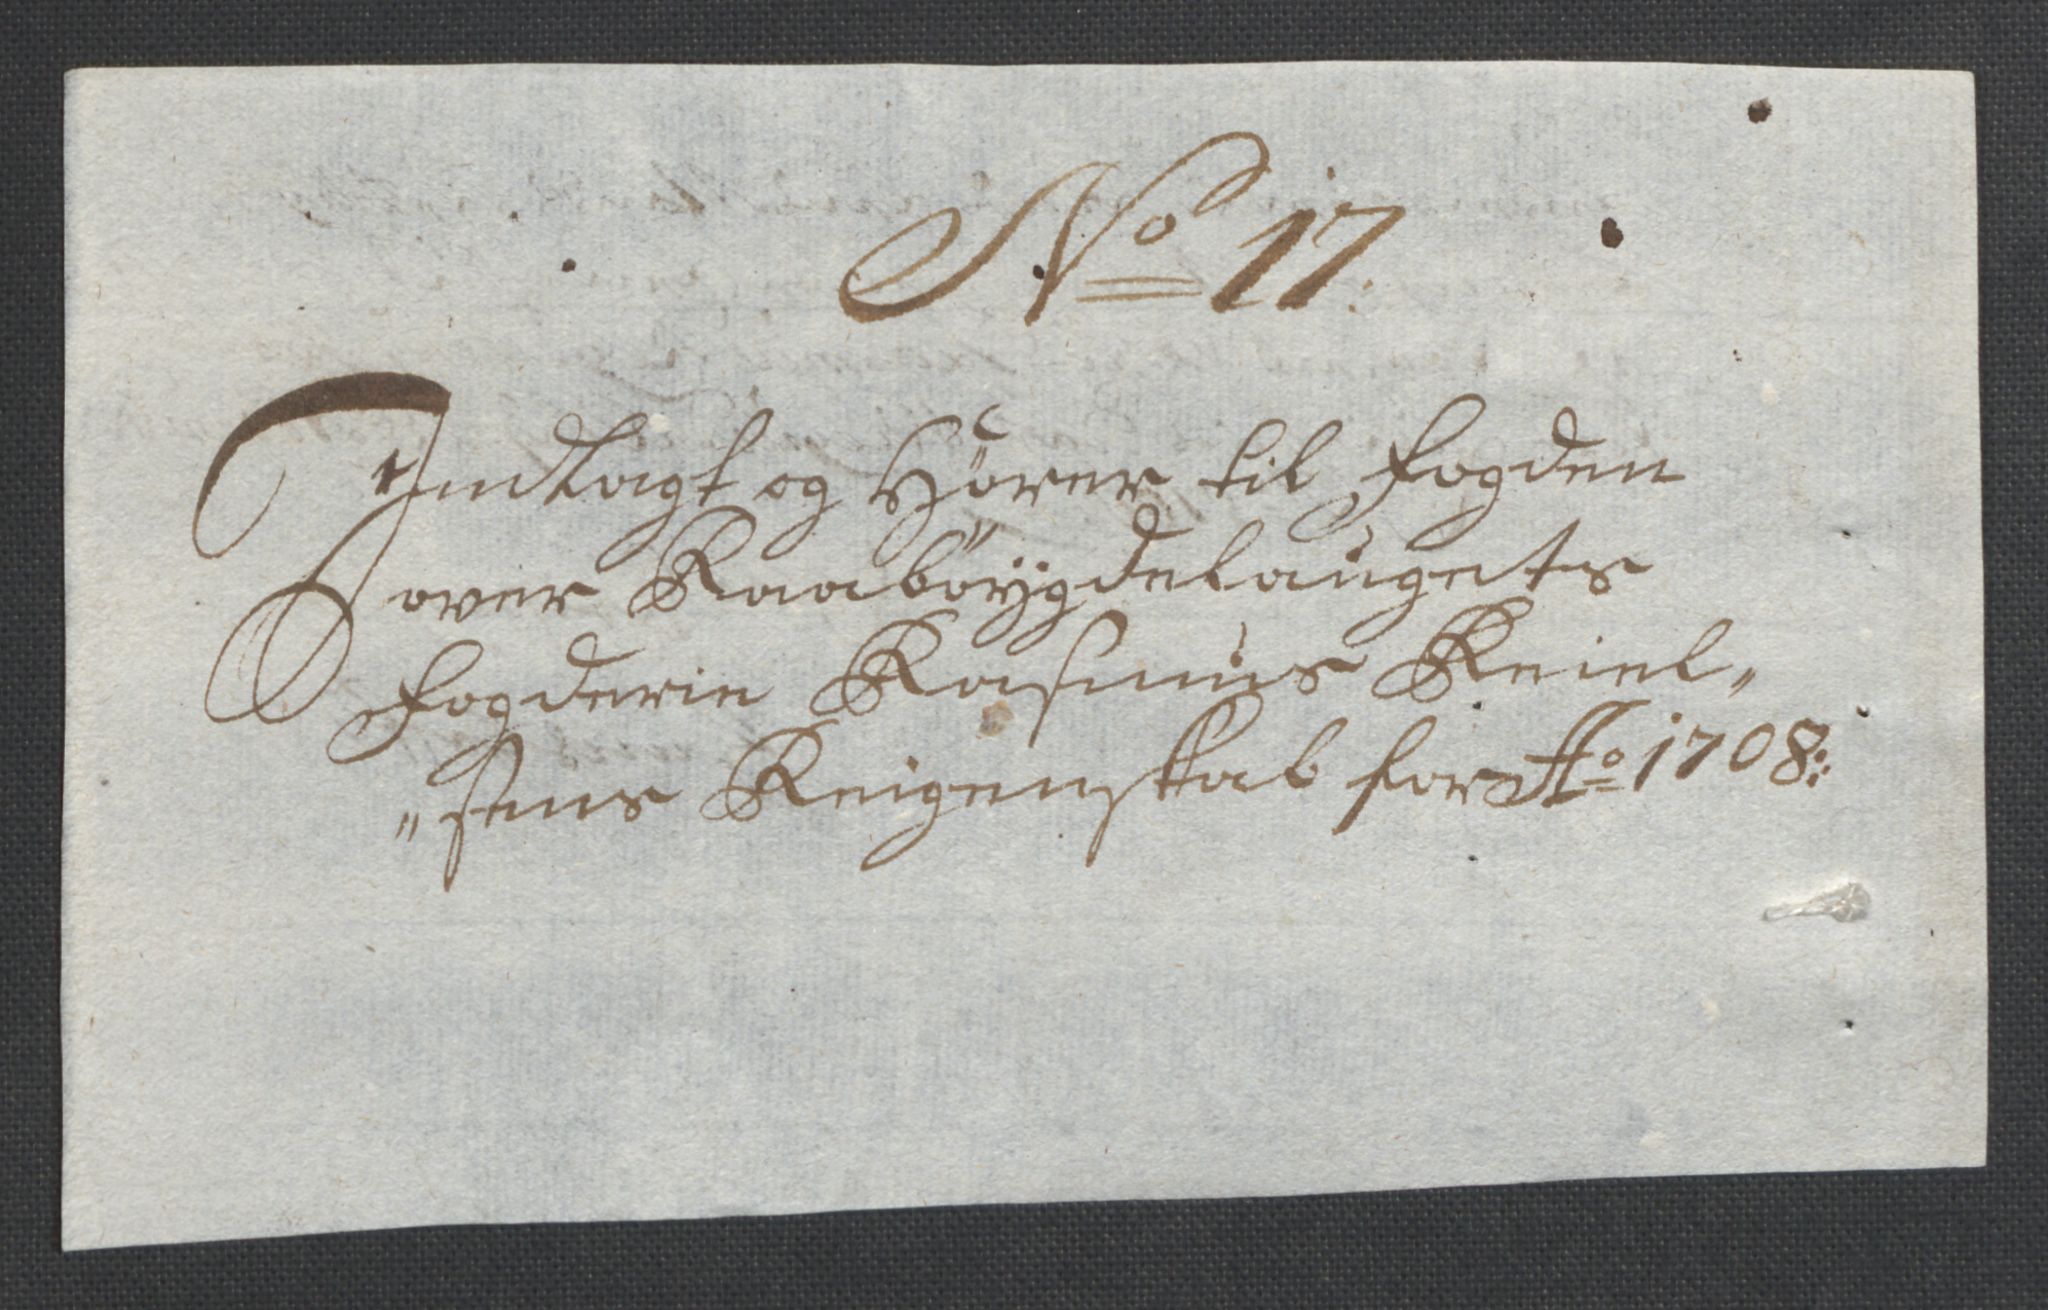 No 17.
Indlagt og Hörer til Fogden
over Raaböygdelaugets
Fogderie Rasmus Keiel„
„sens Reigenskab for Ao 1708: